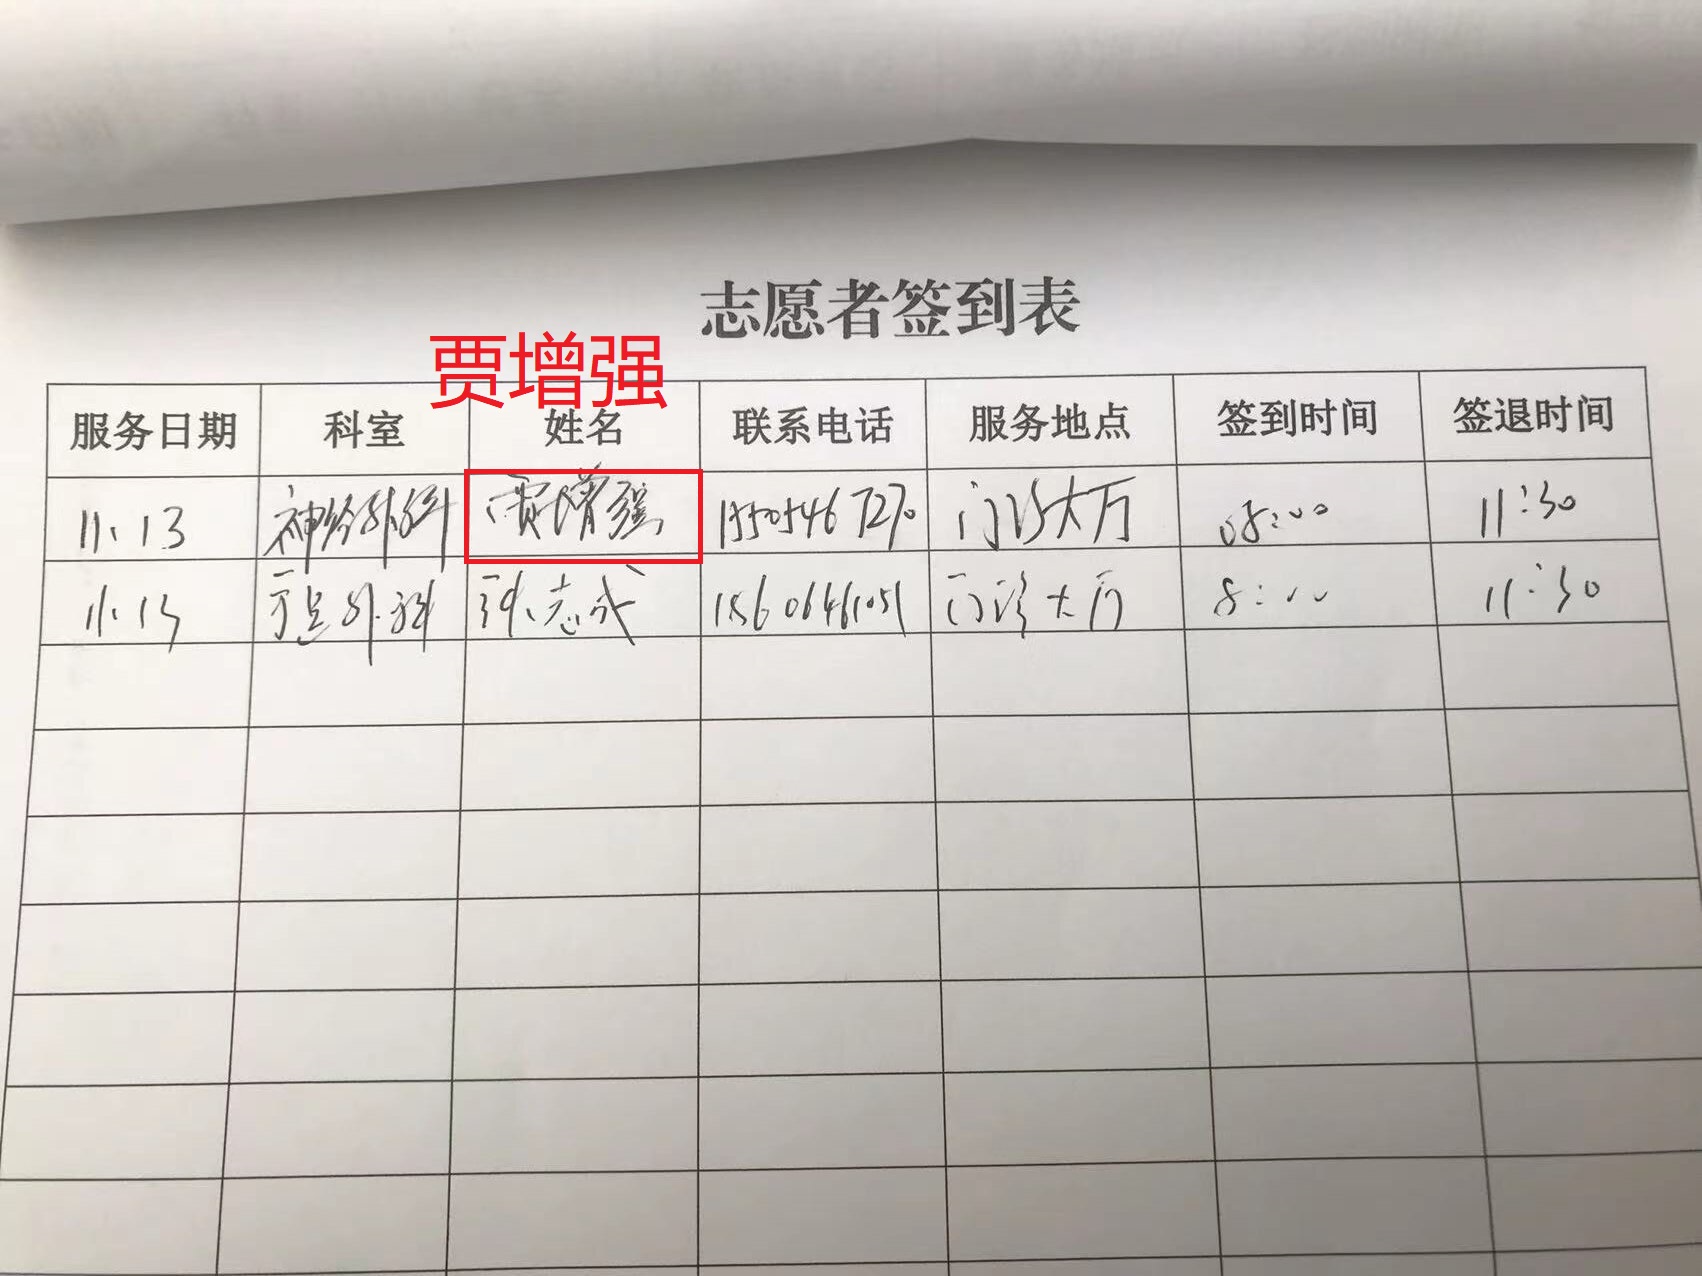 志愿者签到表
贾增强
服务日期 科室 姓名 联系电话 服务地点 签到时间 签退时间
11.13 神经外科 贾增强 15505467270 门诊大厅 08:00 11:30
11.13 外科 志成 15606461051 门诊大厅 8:00 11:30